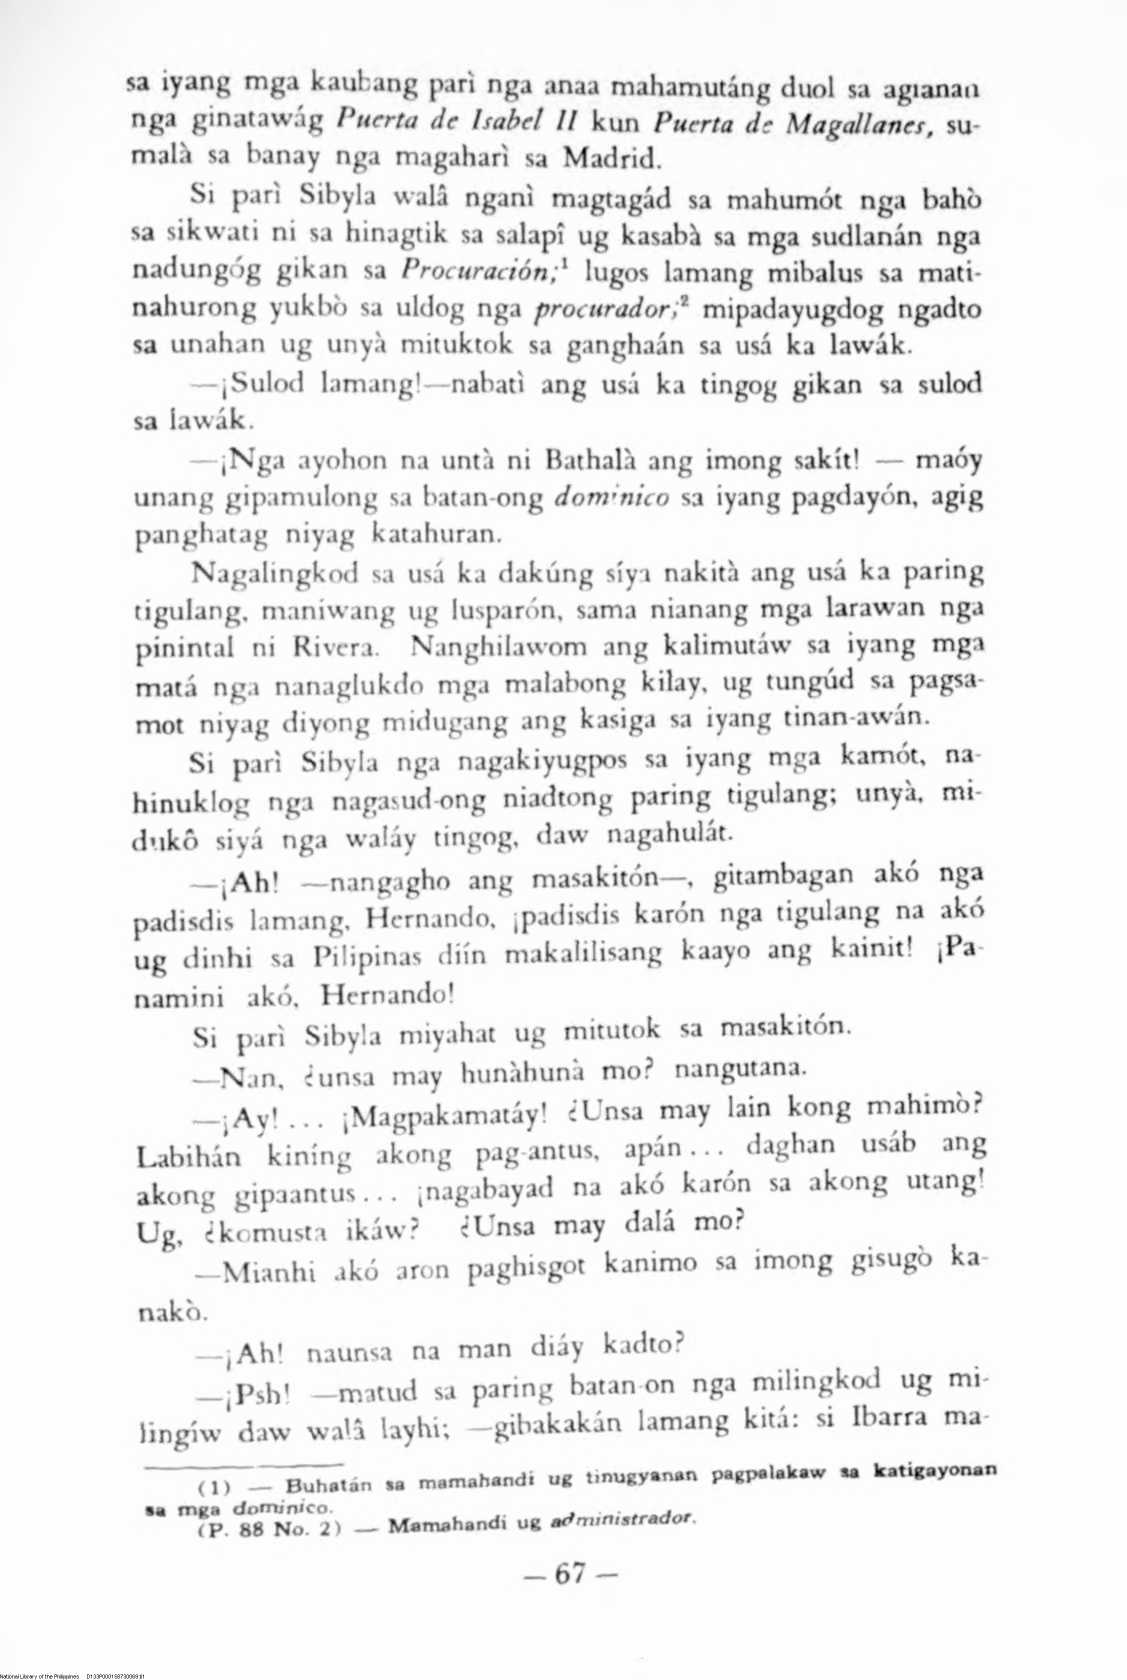 sa iyang mga kaubang parì nga anaa mahamutáng duol sa agianan
nga ginatawág Puerta de Isabel II kun Puerta de Magallanes, su-
malà sa banay nga magaharì sa Madrid.
Si parì Sibyla walâ nganì magtagád sa mahumót nga bahò
sa sikwati ni sa hinagtik sa salapî ug kasabà sa mga sudlanán nga
nadungóg gikan sa Procuración;¹ lugos lamang mibalus sa mati-
nahurong yukbò sa uldog nga procurador;² mipadayugdog ngadto
sa unahan ug unyà mituktok sa ganghaán sa usá ka lawák.
—¡Sulod lamang!—nabatì ang usá ka tingog gikan sa sulod
sa lawák.
—¡Nga ayohon na untà ni Bathalà ang imong sakít! — maóy
unang gipamulong sa batan-ong dominico sa iyang pagdayón, agig
panghatag niyag katahuran.
Nagalingkod sa usá ka dakúng síya nakità ang usá ka paring
tigulang, maníwang ug lusparón, sama nianang mga larawan nga
pinintal ni Rivera. Nanghilawom ang kalimutáw sa iyang mga
matá nga nanaglukdo mga malabong kilay, ug tungúd sa pagsa-
mot niyag diyong midugang ang kasiga sa iyang tinan-awán.
Si parì Sibyla nga nagakiyugpos sa iyang mga kamót, na-
hinuklog nga nagasud-ong niadtong paring tigulang; unyà, mi-
dukô siyá nga waláy tingog, daw nagahulát.
—¡Ah! —nangagho ang masakitón—, gitambagan akó nga
padisdis lamang, Hernando, ¡padisdis karón nga tigulang na akó
ug dinhi sa Pilipinas diín makalilisang kaayo ang kainit! ¡Pa-
namini akó, Hernando!
Si parì Sibyla miyahat ug mitutok sa masakitón.
—Nan, ¿unsa may hunàhunà mo? nangutana.
—¡Ay!... ¡Magpakamatáy! ¿Unsa may lain kong mahimò?
Labihán kiníng akong pag-antus, apán... daghan usáb ang
akong gipaantus... ¡nagabayad na akó karón sa akong utang!
Ug, ¿komusta ikáw? ¿Unsa may dalá mo?
—Mianhi akó aron paghisgot kanimo sa imong gisugò ka-
nakò.
—¡Ah! naunsa na man diáy kadto?
—¡Psh! —matud sa paring batan-on nga milingkod ug mi-
lingíw daw walâ layhi; —gibakakán lamang kitá: si Ibarra ma-
(1) — Buhatán sa mamahandi ug tinugyanan pagpalakaw sa katigayonan
sa mga dominico.
(P. 88 No. 2) — Mamahandi ug administrador.
— 67 —
National Library of the Philippines